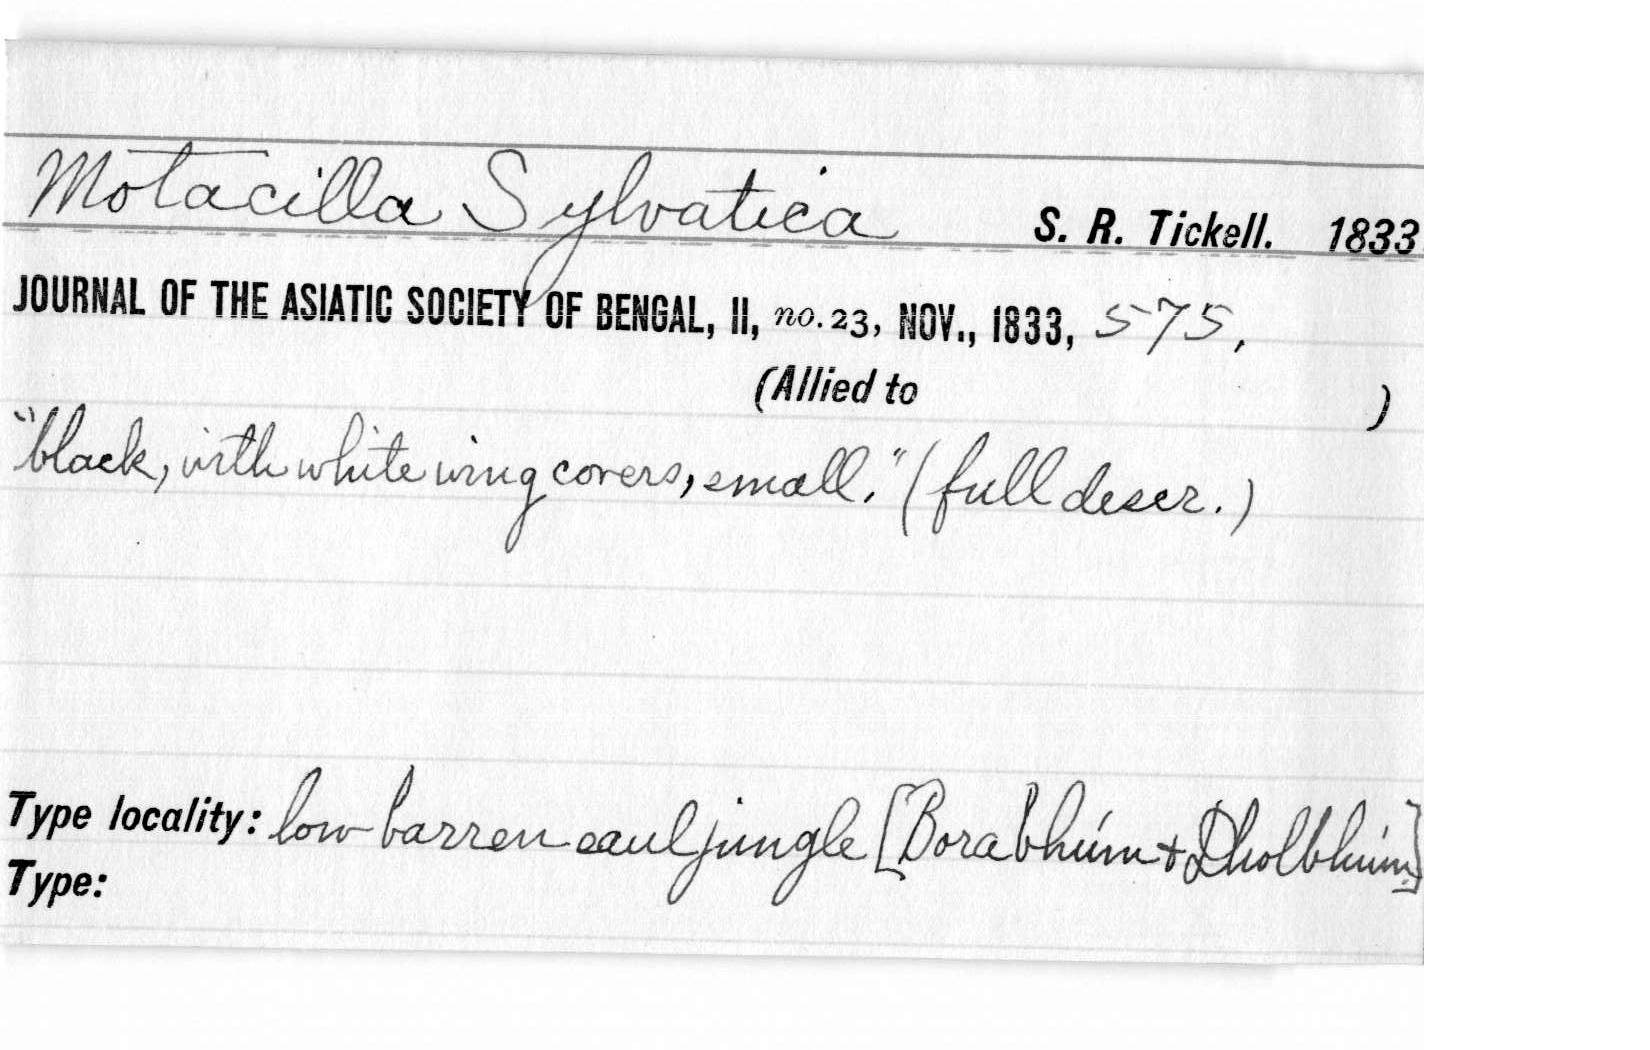 Motacilla Sylvatica S. R. Tickell. 1833
JOURNAL OF THE ASIATIC SOCIETY OF BENGAL, II, no. 23, NOV., 1833, 575,
(Allied to )
"black, with white wing covers, small." (full descr.)
Type locality: low barren saul jungle [Borabhúm + Dholbhúm]
Type: